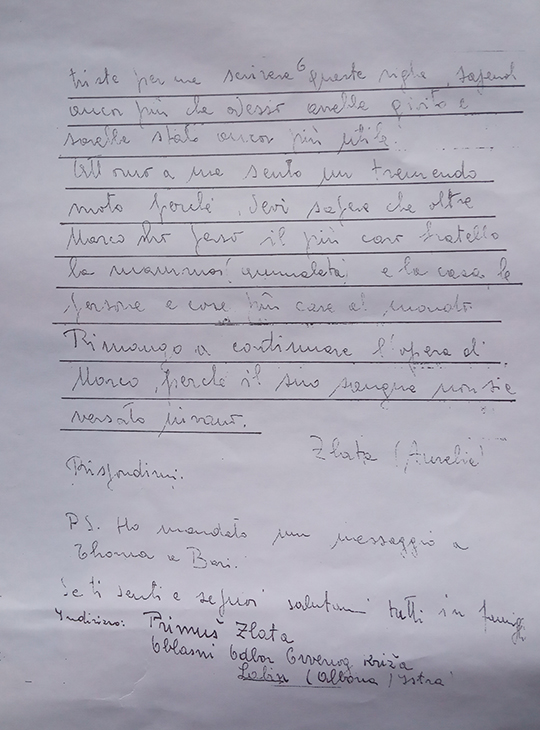 triste per me scrivere queste righe, sapend
ancor più che adesso avrebbe gioito e
sarebbe stato ancor più utile.
Attorno a me sento un tremendo
vuoto perché, devi sapere che oltre
Marco ho perso il più caro fratello
la mamma ammalata e la casa, le
persone e cose più care al mondo.
Rimango a continuare l'opera di
Marco, perché il suo sangue non sie
versato invano.
Zlata (Aurelia)
Rispondimi.
P.S. Ho mandato un messaggio a
Thoma a Bari.
Se ti senti e seguoi salutami tutti in famigli
Indirizzo: Primuš Zlata
Oblasni Odbor Crvenog Križa
Labin (Albona) Istra